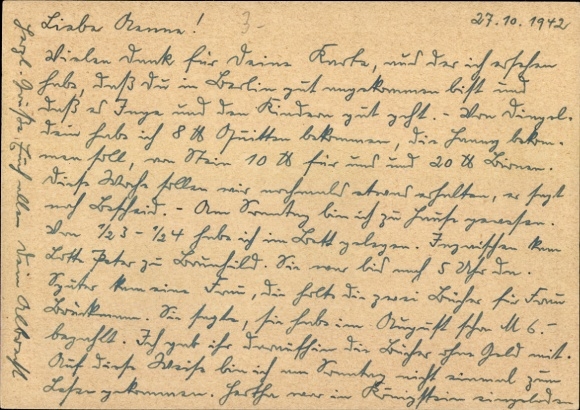 27.10.1942
Liebe Renne! 3-
Vielen Dank für Deine Karte, aus der ich ersehen
habe, daß du in Berlin gut angekommen bist und
daß es Inge und den Kindern gut geht. - Von Dingel-
dein habe ich 8 ℔ Quitten bekommen, die Hanny bekom-
men soll, von Stein 10 ℔ für uns und 20 ℔ Birnen.
Diese Woche sollen wir nochmals etwas erhalten, er sagt
noch Bescheid. - Am Sonntag bin ich zu Hause gewesen.
Von 1/2 3 - 1/2 4 habe ich im Bett gelegen. Inzwischen kam
Lott Peter zu Brunhild. Sie war bis nach 5 Uhr da.
Später kam eine Frau, die holte die zwei Bücher für Frau
Brückmann. Sie sagte, sie habe im August schon M 6.-
bezahlt. Ich gab ihr daraufhin die Bücher ohne Geld mit.
Auf diese Weise bin ich am Sonntag nicht einmal zum
Lesen gekommen. Hertha war in Königstein eingeladen
Herzl. Grüße Euch allen Dein Albrecht